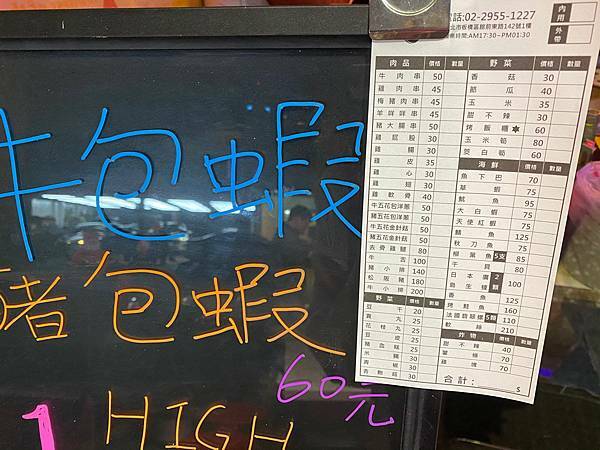 牛包蝦
豬包蝦
60元
1 HIGH
電話:02-2955-1227
北市板橋區館前東路142號1樓
業時間:AM17:30~PM01:30
內用
外帶
肉品 價格 數量
牛肉串 50
雞肉串 45
梅豬肉串 45
羊咩咩串 45
豬大腸串 50
雞屁股 30
雞腸 30
雞皮 35
雞心 30
雞翅 30
雞軟骨 40
牛五花包洋蔥 50
豬五花包洋蔥 50
牛五花金針菇 50
豬五花金針菇 50
去骨雞腿 80
牛舌 100
豬小排 140
松阪豬 180
牛小排 200
野菜 價格 數量
豆干 20
貢丸 25
花枝丸 25
豆皮 25
豬血糕 25
米腸 30
青椒 30
杏鮑菇 30
野菜 價格 數量
香菇 30
節瓜 40
玉米 35
甜不辣 30
烤飯糰 60
玉米筍 80
筊白筍 60
海鮮 價格 數量
魚下巴 70
草蝦 75
魷魚 95
大白蝦 75
天使紅蝦 75
鯖魚 125
秋刀魚 75
柳葉魚5支 85
干貝 80
日本廣島生蠔 2顆 125
香魚 125
烤鮭魚 160
法國翡翠螺5顆 110
軟絲 210
炸物 價格 數量
甜不辣 40
薯條 70
雞塊 70
合計: $